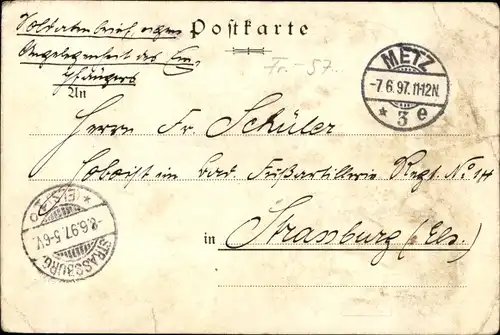 Soldatenbrief eigene
Angelegenheit des Em-
pfängers
Postkarte
Fr. - 57..
An
METZ
-7.6.97.11-12N.
* 3 e
Herrn Fr. Schüler
Hoboist im bad. Fußartillerie Regt. No 14
in Strassburg (Els.)
STRASSBURG,
-8.6.97.5-6V.
(ELS)